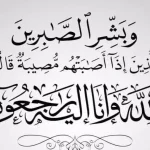 وَبَشِّرِ الصَّابِرِينَ
الَّذِينَ إِذَا أَصَابَتْهُم مُّصِيبَةٌ قَالُ
لِلَّهِ وَإِنَّا إِلَيْهِ رَاجِعُو